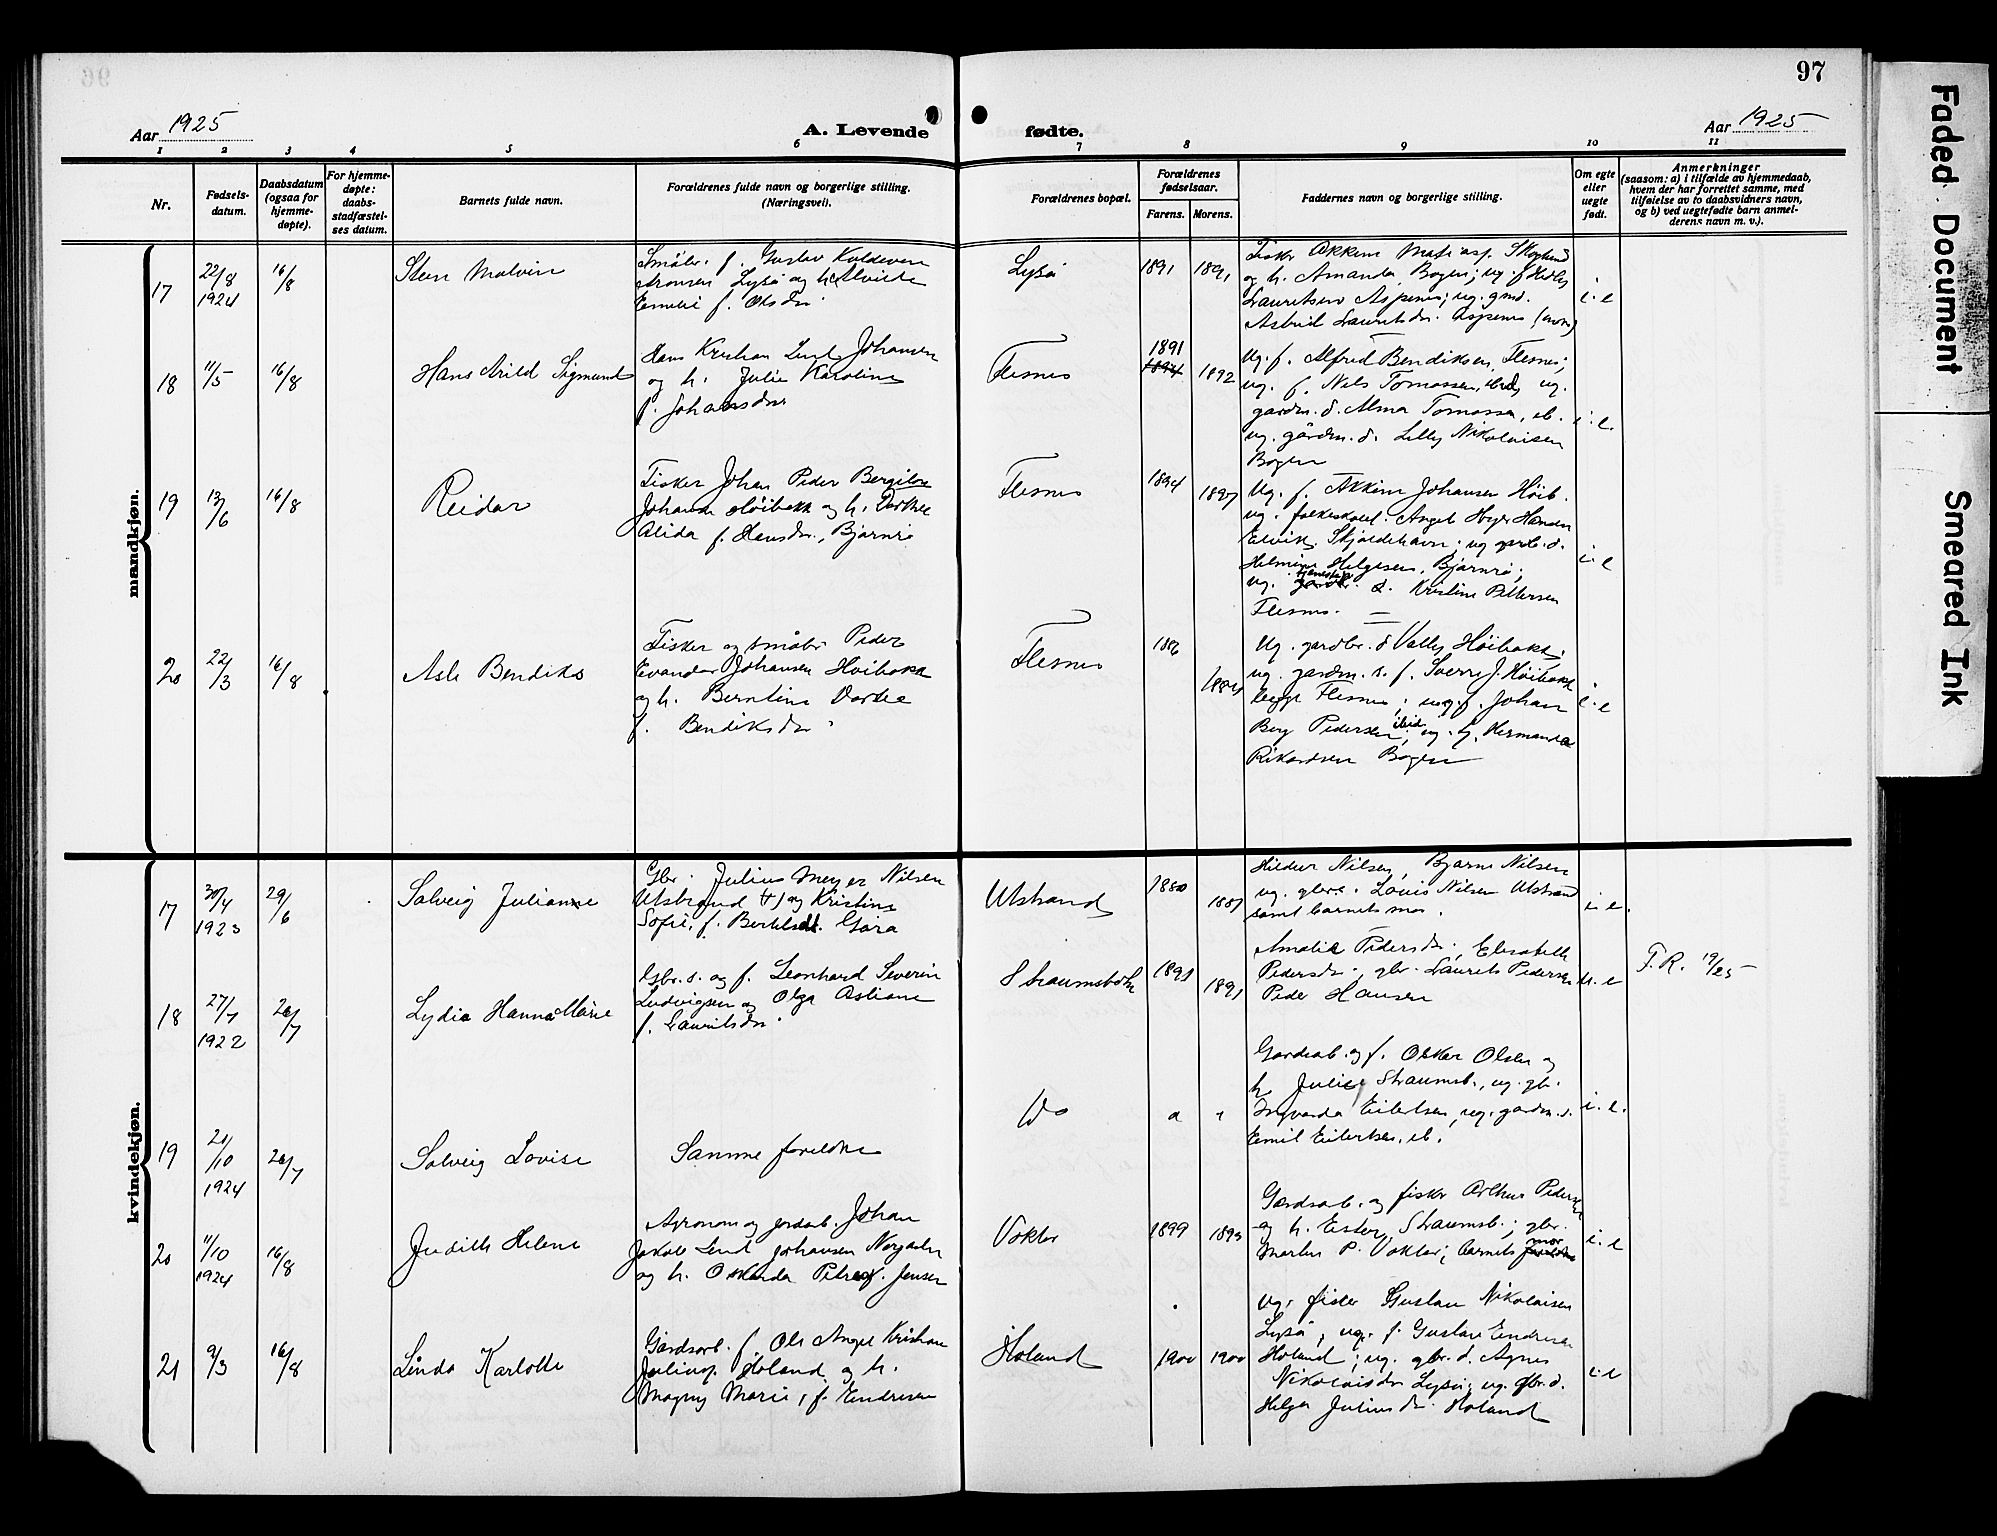 97
Aar 1925
A. Levende fødte.
Aar 1925
1 2 3 4 5 6 7 8 9 10 11
Nr.
Fødsels-
datum.
Daabsdatum
(ogsaa for
hjemme-
døpte).
For hjemme-
døpte:
daabs-
stadfæstel-
ses datum.
Barnets fulde navn.
Forældrenes fulde navn og borgerlige stilling.
(Næringsvei).
Forældrenes bopæl.
Forældrenes
fødselsaar.
Farens. Morens.
Faddernes navn og borgerlige stilling.
Om egte
eller
uegte
født.
Anmerkninger
(saasom: a) i tilfælde av hjemmedaab,
hvem der har forrettet samme, med
tilføielse av to daabsvidners navn,
og b) ved uegtefødte barn anmel-
derens navn m. v.).
mandkjøn.
17
22/8
1924
16/8
Sten Malvin
Småbr. f. Gustav Koldevin
Aronsen Lysø og h.
Emelie f. Olsdr.
Lysø
1891 1891
Fisker Akkim Skoglund
og h. Amanda, Bogen; ug. f.
Lauritsen Aspenes; ug. gmd.
Astrid Lauritsdr. Aspenes (mor)
i. e
18
11/5
16/8
Hans Arild Sigmund
Hans Kristian Lind Johansen
og h. Julie Karoline
f. Johansdr
Flesnes
1891
1894 1892
Ug. f. Alfred Bendiksen, Flesnes;
ug. f. Nils Tomassen, ibid, ug.
gardm. d. Alma Tomassen, ib.
ug. gårdm. d. Lilly Nikolaisen
Bogen
i. e.
19
13/6
16/8
Reidar
Fisker Johan Peder Bergiton
Johansen Høibakk og h. Dorthe
Alida f. Hansdr., Bjørnrå
Flesnes
1894 1897
Ug. f. Akkim Johansen Høib.
ug. folkeskolel. Angel Hansen
Elvik, Skjoldehavn; ug gardb. d.
Helmine Helgesen, Bjørnrå;
ug. d. Kristine Pettersen
Flesnes.
i. e
20
22/3
16/8
Asle Bendiks
Fisker og småbr. Peder
Evandar Johansen Høibakk
og h. Berntine Dortea
f. Bendiksdr.
Flesnes
Ug. gardbr. d Valby Høibakk;
ug. gardm. s. f. Sverre J. Høibakk
begge Flesnes; ug. f. Johan
Berg Pedersen, ibid. ug. f. Hermanda
Rikardsen Bogen
i. e
kvindekjøn.
17
30/4
1923
29/6
Solveig Julianne
Gbr. Julius Meyer Nilsen
Utstrand og Kristine
Sofie, f. Bertelsdt.
Utstrand
1880 1887
Hildur Nilsen, Bjarne Nilsen
ug. gbre. Louis Nilsen Utstrand
samt barnets mor.
i. e.
18
27/7
1922
26/7
Lydia Hanna Marie
Gbr. s. og f. Leonhard Severin
Ludvigsen og Olga Ostiane
f. Lauritsdr.
Straumsbotn
1891 1891
Amalie Pedersdr.; Elisabeth
Pedersdr., gbr. Laurits Pedersen
Peder Hansen
u. e
T. R. 19/25
19
20/10
1924
26/7
Solveig Lovise
Samme foreldre
Do
Gardsarb. og f. Oskar Olsen og
h. Julie Straumsb., ug. gbr.
Ingvarda Eilertsen, ug. gardm. s.
Emil Eilertsen, ib.
i. e.
20
11/10
1924
16/8
Judith Helene
Agronom og jordarb. Johan
Jakob Lind Johansen Norgarden
og h. Oskarda Petrea f. Jensen
Voktor
1899 1893
Gardsarb. og fisker Arthur Pedersen
og h. Ester, Straumsb.; gbr.
Martin P. Voktor; barnets mor
i. e
21
9/3
16/8
Linda Karlotte
Gårdsarb. f. Ole Angel Kristian
Juliusf. Holand og h.
Magny Marie, f. Endresen
Holand
1900 1900
Ug. fisker Gustav Nikolaisen
Lysø; ug. f. Gustav Endresen
Holand; ug. gbr. d. Agnes
Nikolaisdr Lysø; ug. gbr. d.
Helga Juliusdr. Holand
i. e
Faded Document
Smeared Ink